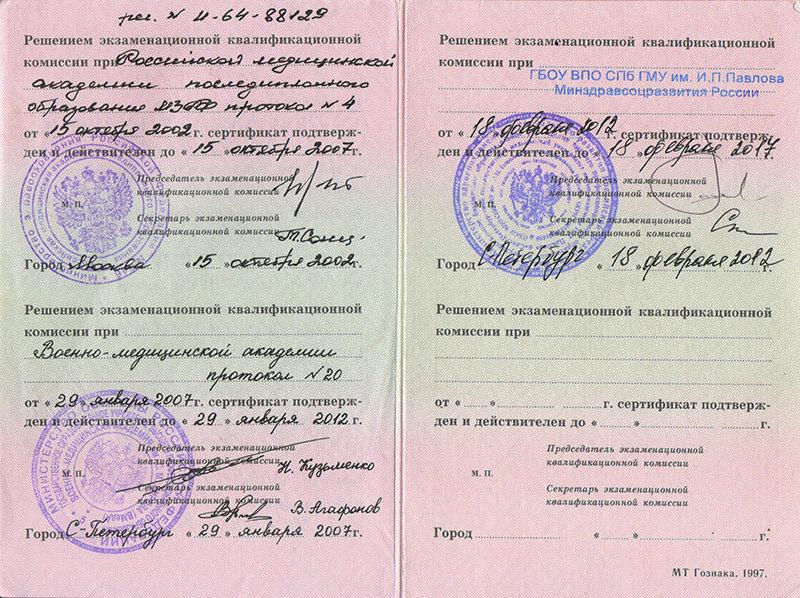 рег. N 4-64-88129
Решением экзаменационной квалификационной
комиссии при Российской медицинской
академии последипломного
образования МЗ РФ протокол N 4
от « 15 октября 2002 г. сертификат подтверж-
ден и действителен до « 15 » октября 2007 г.
Председатель экзаменационной
квалификационной комиссии
М. П.
Секретарь экзаменационной
квалификационной комиссии
Город Москва « 15 » октября 2002 г.
Решением экзаменационной квалификационной
комиссии при
Военно-медицинской академии
протокол N 20
от « 29 » января 2007 г. сертификат подтверж-
ден и действителен до « 29 » января 2012 г.
Председатель экзаменационной
квалификационной комиссии Н. Кузьменко
М. П.
Секретарь экзаменационной
квалификационной комиссии В. Агафонов
Город С-Петербург « 29 » января 2007 г.
Решением экзаменационной квалификационной
комиссии при
ГБОУ ВПО СПб ГМУ им. И.П.Павлова
Минздравсоцразвития России
от « 18 » февраля 2012 г. сертификат подтверж-
ден и действителен до « 18 » февраля 2017 г.
Председатель экзаменационной
квалификационной комиссии
М. П.
Секретарь экзаменационной
квалификационной комиссии
Город С-Петербург « 18 » февраля 2012 г.
Решением экзаменационной квалификационной
комиссии при
от « » г. сертификат подтверж-
ден и действителен до « » г.
Председатель экзаменационной
квалификационной комиссии
М. П.
Секретарь экзаменационной
квалификационной комиссии
Город « » г.
МТ Гознака. 1997.